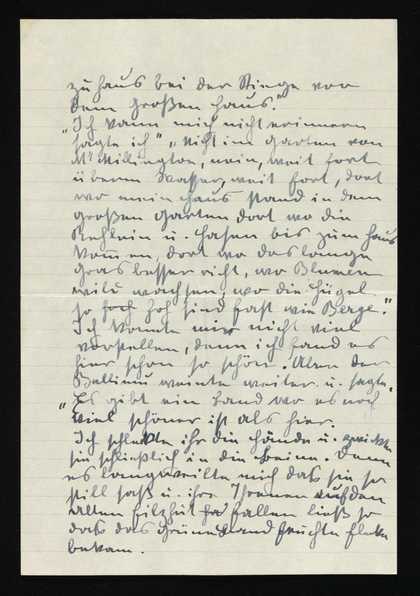 zuhaus bei der Stiege vor
dem großen Haus."
"Ich kann mich nicht erinnern
sagte ich" "Nicht im Garten von
Mr Millington, nein, weit fort
überm Wasser, weit fort, dort
wo mein Haus stand in dem
großen Garten dort wo die
Rehlein u. Hasen bis zum Haus
kommen, dort wo das lange
Gras besser riecht, wo Blumen
wild wachsen, wo die Hügel
so hoch sind fast wie Berge."
Ich konnte mir nicht viel
vorstellen, denn ich fand es
hier schon so schön. Aber der
weinte weiter u. sagte,
"Es gibt ein Land wo es noch
viel schöner ist als hier.
Ich schleckte ihr die Hände u. zwickte
sie schließlich in die Beine. Denn
es langweilte mich daß sie so
still saß u. ihre Thränen auf den
alten Filzhut fallen ließ so
daß das grüne Band feuchte Flecke
bekam.